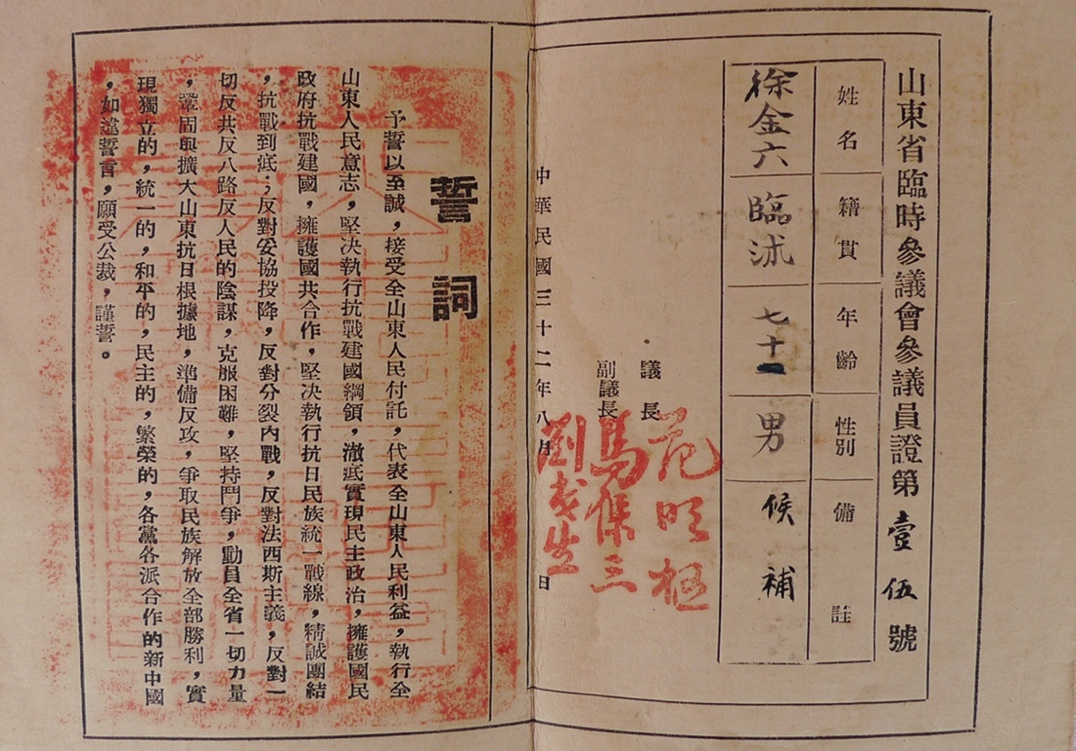 山東省臨時參議會參議員證第壹伍號
姓名
籍貫
年齡
性別
備註
徐金六
臨沭
七十一
男
候補
議長
范明樞
副議長
馬保三
劉民生
中華民國三十二年八月 日
誓詞
予誓以至誠,接受全山東人民付託,代表全山東人民利益,執行全
山東人民意志,堅决執行抗戰建國綱領,澈底實現民主政治,擁護國民
政府抗戰建國,擁護國共合作,堅决執行抗日民族統一戰線,精誠團結
,抗戰到底;反對妥協投降,反對分裂內戰,反對法西斯主義,反對一
切反共反八路反人民的陰謀,克服困難,堅持鬥爭,動員全省一切力量
,鞏固與擴大山東抗日根據地,準備反攻,爭取民族解放全部勝利,實
現獨立的,統一的,和平的,民主的,繁榮的,各黨各派合作的新中國
,如違誓言,願受公裁,謹誓。